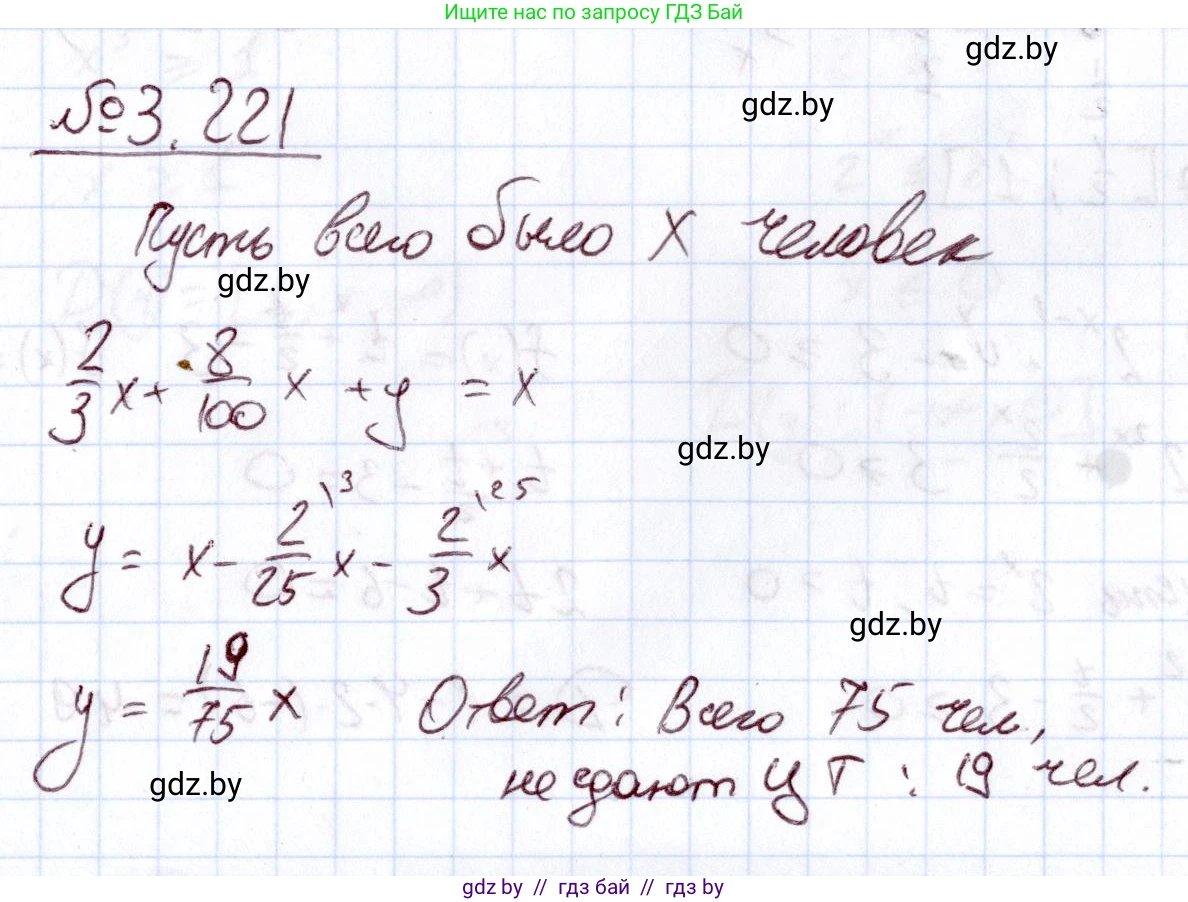 Ищите нас по запросу ГДЗ Бай
gdz.by
gdz.by
№3.221
Пусть всего было x человек
gdz.by
2/3 x + 8/100 x + y = x
gdz.by
y = x - 2/25 \3 x - 2/3 \25 x
gdz.by
y = 19/75 x Ответ: Всего 75 чел,
не сдают ЦТ : 19 чел.
gdz.by
gdz.by // гдз бай // гдз by